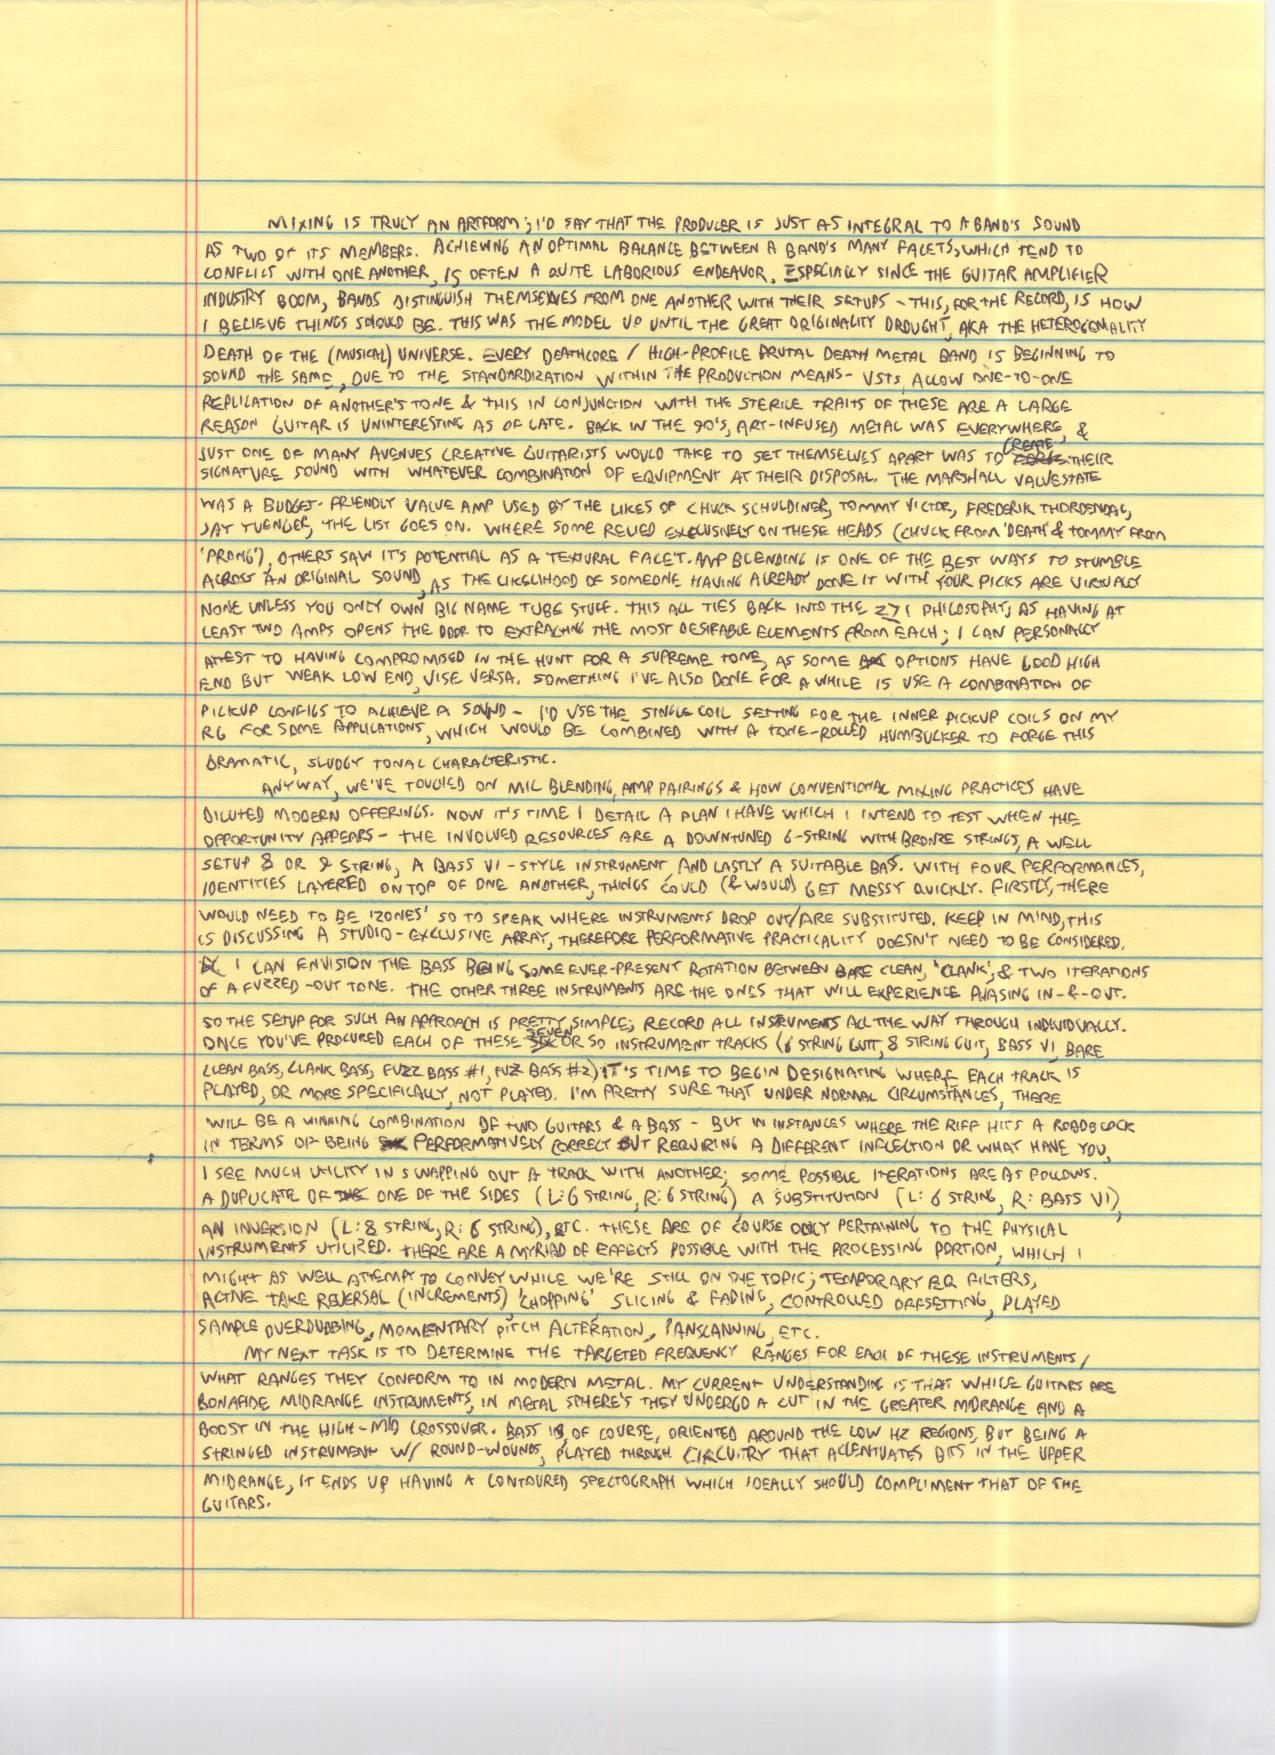 MIXING IS TRULY AN ARTFORM; I'D SAY THAT THE PRODUCER IS JUST AS INTEGRAL TO A BAND'S SOUND
AS TWO OF ITS MEMBERS. ACHIEVING AN OPTIMAL BALANCE BETWEEN A BAND'S MANY FACETS, WHICH TEND TO
CONFLICT WITH ONE ANOTHER, IS OFTEN A QUITE LABORIOUS ENDEAVOR. ESPECIALLY SINCE THE GUITAR AMPLIFIER
INDUSTRY BOOM, BANDS DISTINGUISH THEMSELVES FROM ONE ANOTHER WITH THEIR SETUPS - THIS, FOR THE RECORD, IS HOW
I BELIEVE THINGS SHOULD BE. THIS WAS THE MODEL UP UNTIL THE GREAT ORIGINALITY DROUGHT, AKA THE HETEROGENALITY
DEATH OF THE (MUSICAL) UNIVERSE. EVERY DEATHCORE / HIGH-PROFILE BRUTAL DEATH METAL BAND IS BEGINNING TO
SOUND THE SAME, DUE TO THE STANDARDIZATION WITHIN THE PRODUCTION MEANS - VSTS ALLOW ONE-TO-ONE
REPLICATION OF ANOTHER'S TONE & THIS IN CONJUNCTION WITH THE STERILE TRAITS OF THESE ARE A LARGE
REASON GUITAR IS UNINTERESTING AS OF LATE. BACK IN THE 90'S, ART-INFUSED METAL WAS EVERYWHERE, &
JUST ONE OF MANY AVENUES CREATIVE GUITARISTS WOULD TAKE TO SET THEMSELVES APART WAS TO CREATE THEIR
SIGNATURE SOUND WITH WHATEVER COMBINATION OF EQUIPMENT AT THEIR DISPOSAL. THE MARSHALL VALVESTATE
WAS A BUDGET-FRIENDLY VALUE AMP USED BY THE LIKES OF CHUCK SCHULDINER, TOMMY VICTOR, FREDERIK THORDENDAL,
JAY YUENGER, THE LIST GOES ON. WHERE SOME RELIED EXCLUSIVELY ON THESE HEADS (CHUCK FROM 'DEATH' & TOMMY FROM
'PRONG'), OTHERS SAW IT'S POTENTIAL AS A TEXTURAL FACET. AMP BLENDING IS ONE OF THE BEST WAYS TO STUMBLE
ACROSS AN ORIGINAL SOUND, AS THE LIKELIHOOD OF SOMEONE HAVING ALREADY DONE IT WITH YOUR PICKS ARE VIRTUALLY
NONE UNLESS YOU ONLY OWN BIG NAME TUBE STUFF. THIS ALL TIES BACK INTO THE 2>1 PHILOSOPHY, AS HAVING AT
LEAST TWO AMPS OPENS THE DOOR TO EXTRACTING THE MOST DESIRABLE ELEMENTS FROM EACH; I CAN PERSONALLY
ATTEST TO HAVING COMPROMISED IN THE HUNT FOR A SUPREME TONE, AS SOME OPTIONS HAVE GOOD HIGH
END BUT WEAK LOW END, VISE VERSA. SOMETHING I'VE ALSO DONE FOR A WHILE IS USE A COMBINATION OF
PICKUP CONFIGS TO ACHIEVE A SOUND - I'D USE THE SINGLE COIL SETTING FOR THE INNER PICKUP COILS ON MY
RG FOR SOME APPLICATIONS, WHICH WOULD BE COMBINED WITH A TONE-ROLLED HUMBUCKER TO FORGE THIS
DRAMATIC, SLUDGY TONAL CHARACTERISTIC.
ANYWAY, WE'VE TOUCHED ON MIC BLENDING, AMP PAIRINGS & HOW CONVENTIONAL MIXING PRACTICES HAVE
DILUTED MODERN OFFERINGS. NOW IT'S TIME I DETAIL A PLAN I HAVE WHICH I INTEND TO TEST WHEN THE
OPPORTUNITY APPEARS - THE INVOLVED RESOURCES ARE A DOWNTUNED 6-STRING WITH BRONZE STRINGS, A WELL
SETUP 8 OR 9 STRING, A BASS VI-STYLE INSTRUMENT AND LASTLY A SUITABLE BAS. WITH FOUR PERFORMANCES,
IDENTITIES LAYERED ON TOP OF ONE ANOTHER, THINGS COULD (& WOULD) GET MESSY QUICKLY. FIRSTLY, THERE
WOULD NEED TO BE 'ZONES' SO TO SPEAK WHERE INSTRUMENTS DROP OUT/ARE SUBSTITUTED. KEEP IN MIND, THIS
IS DISCUSSING A STUDIO-EXCLUSIVE ARRAY, THEREFORE PERFORMATIVE PRACTICALITY DOESN'T NEED TO BE CONSIDERED.
I CAN ENVISION THE BASS BEING SOME EVER-PRESENT ROTATION BETWEEN BARE CLEAN, 'CLANK', & TWO ITERATIONS
OF A FUZZED-OUT TONE. THE OTHER THREE INSTRUMENTS ARE THE ONES THAT WILL EXPERIENCE PHASING IN-&-OUT.
SO THE SETUP FOR SUCH AN APPROACH IS PRETTY SIMPLE; RECORD ALL INSTRUMENTS ALL THE WAY THROUGH INDIVIDUALLY.
ONCE YOU'VE PROCURED EACH OF THESE SEVEN OR SO INSTRUMENT TRACKS (6 STRING GUIT, 8 STRING GUIT, BASS VI, BARE
CLEAN BASS, CLANK BASS, FUZZ BASS #1, FUZ BASS #2) IT'S TIME TO BEGIN DESIGNATING WHERE EACH TRACK IS
PLAYED, OR MORE SPECIFICALLY, NOT PLAYED. I'M PRETTY SURE THAT UNDER NORMAL CIRCUMSTANCES, THERE
WILL BE A WINNING COMBINATION OF TWO GUITARS & A BASS - BUT IN INSTANCES WHERE THE RIFF HITS A ROADBLOCK
IN TERMS OF BEING PERFORMATIVELY CORRECT BUT REQUIRING A DIFFERENT INFLECTION OR WHAT HAVE YOU,
I SEE MUCH UTILITY IN SWAPPING OUT A TRACK WITH ANOTHER; SOME POSSIBLE ITERATIONS ARE AS FOLLOWS.
A DUPLICATE OF ONE OF THE SIDES (L: 6 STRING, R: 6 STRING) A SUBSTITUTION (L: 6 STRING, R: BASS VI),
AN INVERSION (L: 8 STRING, R: 6 STRING), ETC. THESE ARE OF COURSE ONLY PERTAINING TO THE PHYSICAL
INSTRUMENTS UTILIZED. THERE ARE A MYRIAD OF EFFECTS POSSIBLE WITH THE PROCESSING PORTION, WHICH I
MIGHT AS WELL ATTEMPT TO CONVEY WHILE WE'RE STILL ON THE TOPIC; TEMPORARY EQ FILTERS,
ACTIVE TAKE REVERSAL (INCREMENTS) 'CHOPPING', SLICING & FADING, CONTROLLED OFFSETTING, PLAYED
SAMPLE OVERDUBBING, MOMENTARY PITCH ALTERATION, PANSCANNING, ETC.
MY NEXT TASK IS TO DETERMINE THE TARGETED FREQUENCY RANGES FOR EACH OF THESE INSTRUMENTS /
WHAT RANGES THEY CONFORM TO IN MODERN METAL. MY CURRENT UNDERSTANDING IS THAT WHILE GUITARS ARE
BONAFIDE MIDRANGE INSTRUMENTS, IN METAL SPHERE'S THEY UNDERGO A CUT IN THE GREATER MIDRANGE AND A
BOOST IN THE HIGH-MID CROSSOVER. BASS IS, OF COURSE, ORIENTED AROUND THE LOW HZ REGIONS, BUT BEING A
STRINGED INSTRUMENT W/ ROUND-WOUNDS, PLAYED THROUGH CIRCUITRY THAT ACCENTUATES BITS IN THE UPPER
MIDRANGE, IT ENDS UP HAVING A CONTOURED SPECTOGRAPH WHICH IDEALLY SHOULD COMPLIMENT THAT OF THE
GUITARS.